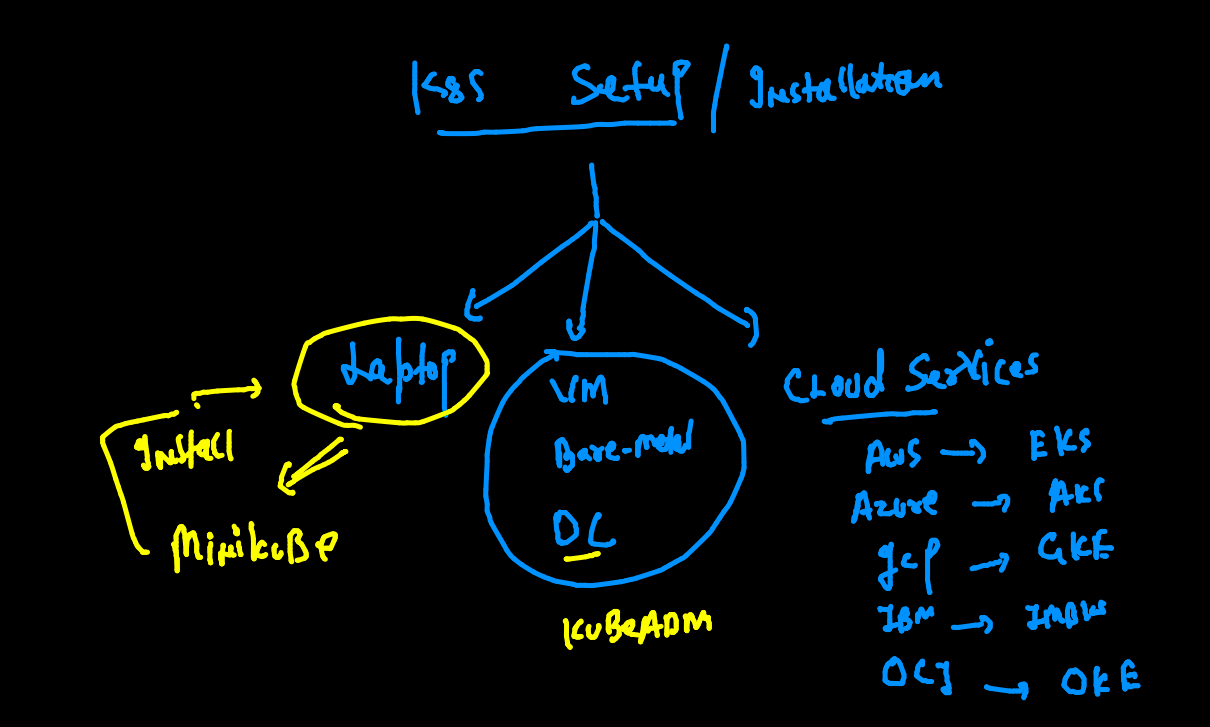 K8S Setup / Installation
Laptop
Install
MinikuBe
VM
Bare-metal
DC
KuBeADM
Cloud Services
AWS → EKS
Azure → AKS
gcp → GKE
IBM →
OCI → OKE